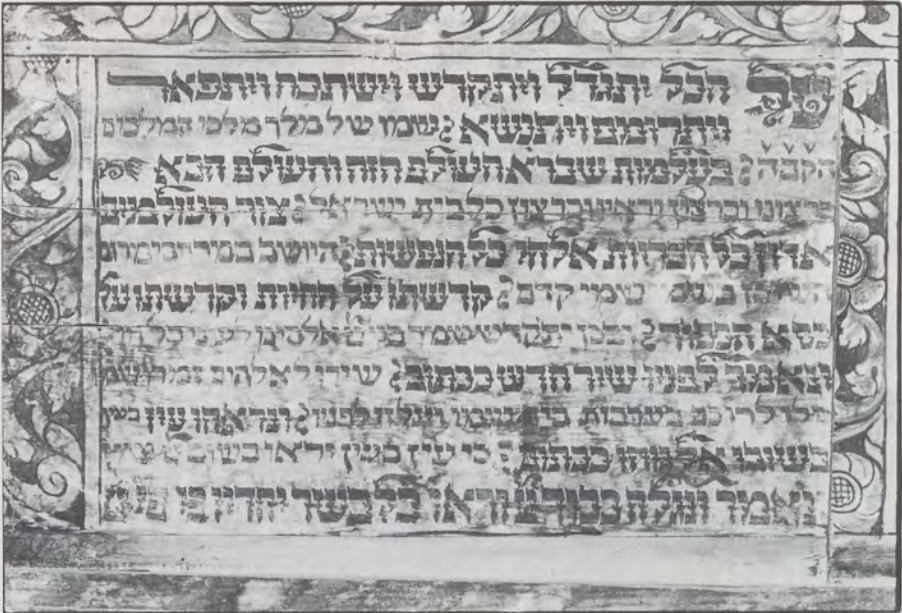 על הכל יתגדל ויתקדש וישתבח ויתפאר
ויתרומם ויתנשא שמו של מלך מלכי המלכים
הקבה בעולמות שברא העולם הזה והעולם הבא
כרצונו וכרצון יראיו וכרצון כל בית ישראל צור העולמים
אדון כל הבריות אלוה כל הנפשות היושב במרחבי מרום
השוכן בשמי שמי קדם קדשתו על החיות וקדשתו על
כסא הכבוד ובכן יתקדש שמך בנו יי אלהינו לעיני כל חי
ונאמר לפניו שיר חדש ככתוב שירו לאלהים זמרו שמו
סולו לרוכב בערבות ביה שמו ועלזו לפניו ונראהו עין בעין
בשובו אל נוהו ככתוב כי עין בעין יראו בשוב יי ציון
ונאמר ונגלה כבוד יי וראו כל בשר יחדיו כי פי יי